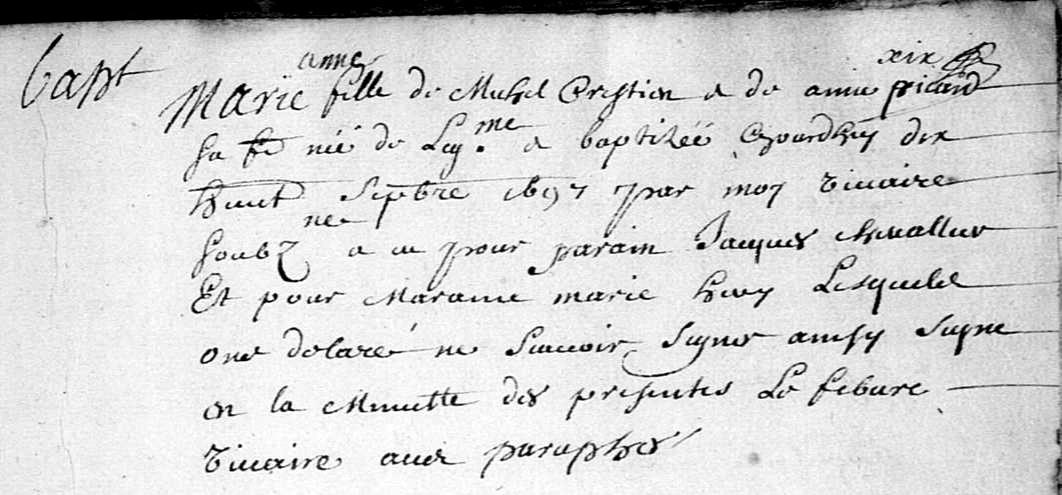 bapt
anne xix
Marie fille de Michel Crestien & de anne picard
sa fe née de Leg.me & baptizée cejourdhuy dix
huict Sepbre 1697 par moy vicaire
soubz ne a eu pour parain Jacques chevallier
Et pour Maraine marie huey Lesquels
ons declaré ne scavoir signer ainsy signe
en la Minutte des presentes Le febure
vicaire avec paraphes